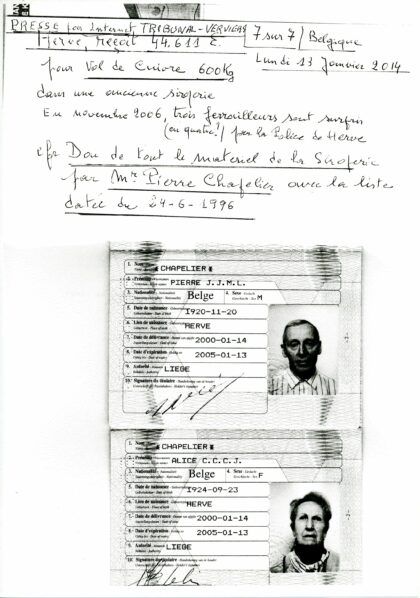 PRESSE par Internet TRIBUNAL-VERVIERS 7 sur 7 / Belgique
Herve, 44.611 €. Lundi 13 Janvier 2014
pour Vol de Cuivre 600Kg
dans une ancienne siroperie
En novembre 2006, trois ferrailleurs sont surpris
(ou quatre?) par la Police de Herve
Don de tout le materiel de la Siroperie
par Mr Pierre Chapelier avec la liste
datée du 24-6-1996
1. Nom CHAPELIER
2. Prénoms PIERRE J.J.M.L.
3. Nationalité Belge 4. Sexe M
5. Date de naissance 1920-11-20
6. Lieu de naissance HERVE
7. Date de délivrance 2000-01-14
8. Date d'expiration 2005-01-13
9. Autorité LIEGE
10. Signature du titulaire
1. Nom CHAPELIER
2. Prénoms ALICE C.C.C.J.
3. Nationalité Belge 4. Sexe F
5. Date de naissance 1924-09-23
6. Lieu de naissance HERVE
7. Date de délivrance 2000-01-14
8. Date d'expiration 2005-01-13
9. Autorité LIEGE
10. Signature du titulaire